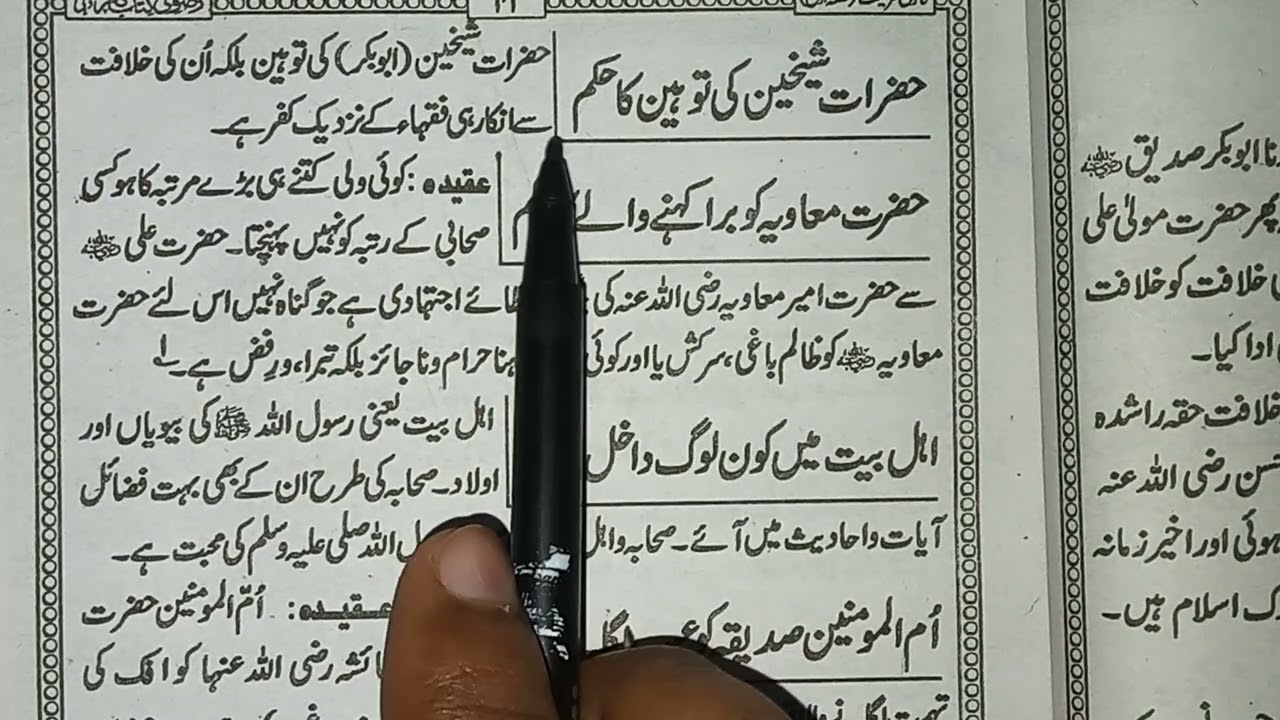 حضرات شیخین کی توہین کا حکم
حضرات شیخین (ابوبکر) کی توہین بلکہ اُن کی خلافت
سے انکار ہی فقہاء کے نزدیک کفر ہے۔
حضرت معاویہ کو برا کہنے والے
عقیدہ: کوئی ولی کتنے ہی بڑے مرتبہ کا ہو کسی
صحابی کے رتبہ کو نہیں پہنچتا۔ حضرت علی ؓ
سے حضرت امیر معاویہ رضی اللہ عنہ کی اجتہادی ہے جو گناہ نہیں اس لئے حضرت
معاویہ ؓ کو ظالم باغی، سرکش یا اور کوئی حرام و ناجائز بلکہ تبرا، ورفض ہے۔
اہل بیت میں کون لوگ داخل
اہل بیت یعنی رسول اللہ ﷺ کی بیویاں اور
اولاد۔ صحابہ کی طرح ان کے بھی بہت فضائل
آیات و احادیث میں آئے۔ صحابہ و اہل اللہ صلی علیہ وسلم کی محبت ہے۔
اُم المومنین صدیقہ کو
عقیدہ: اُمّ المومنین حضرت
رضی اللہ عنہا کو افک کی
نا ابوبکر صدیق ؓ
پھر حضرت مولیٰ علی
خلافت کو خلافت
ادا کیا۔
خلافت حقہ راشدہ
رضی اللہ عنہ
ہوئی اور اخیر زمانہ
اسلام ہیں۔